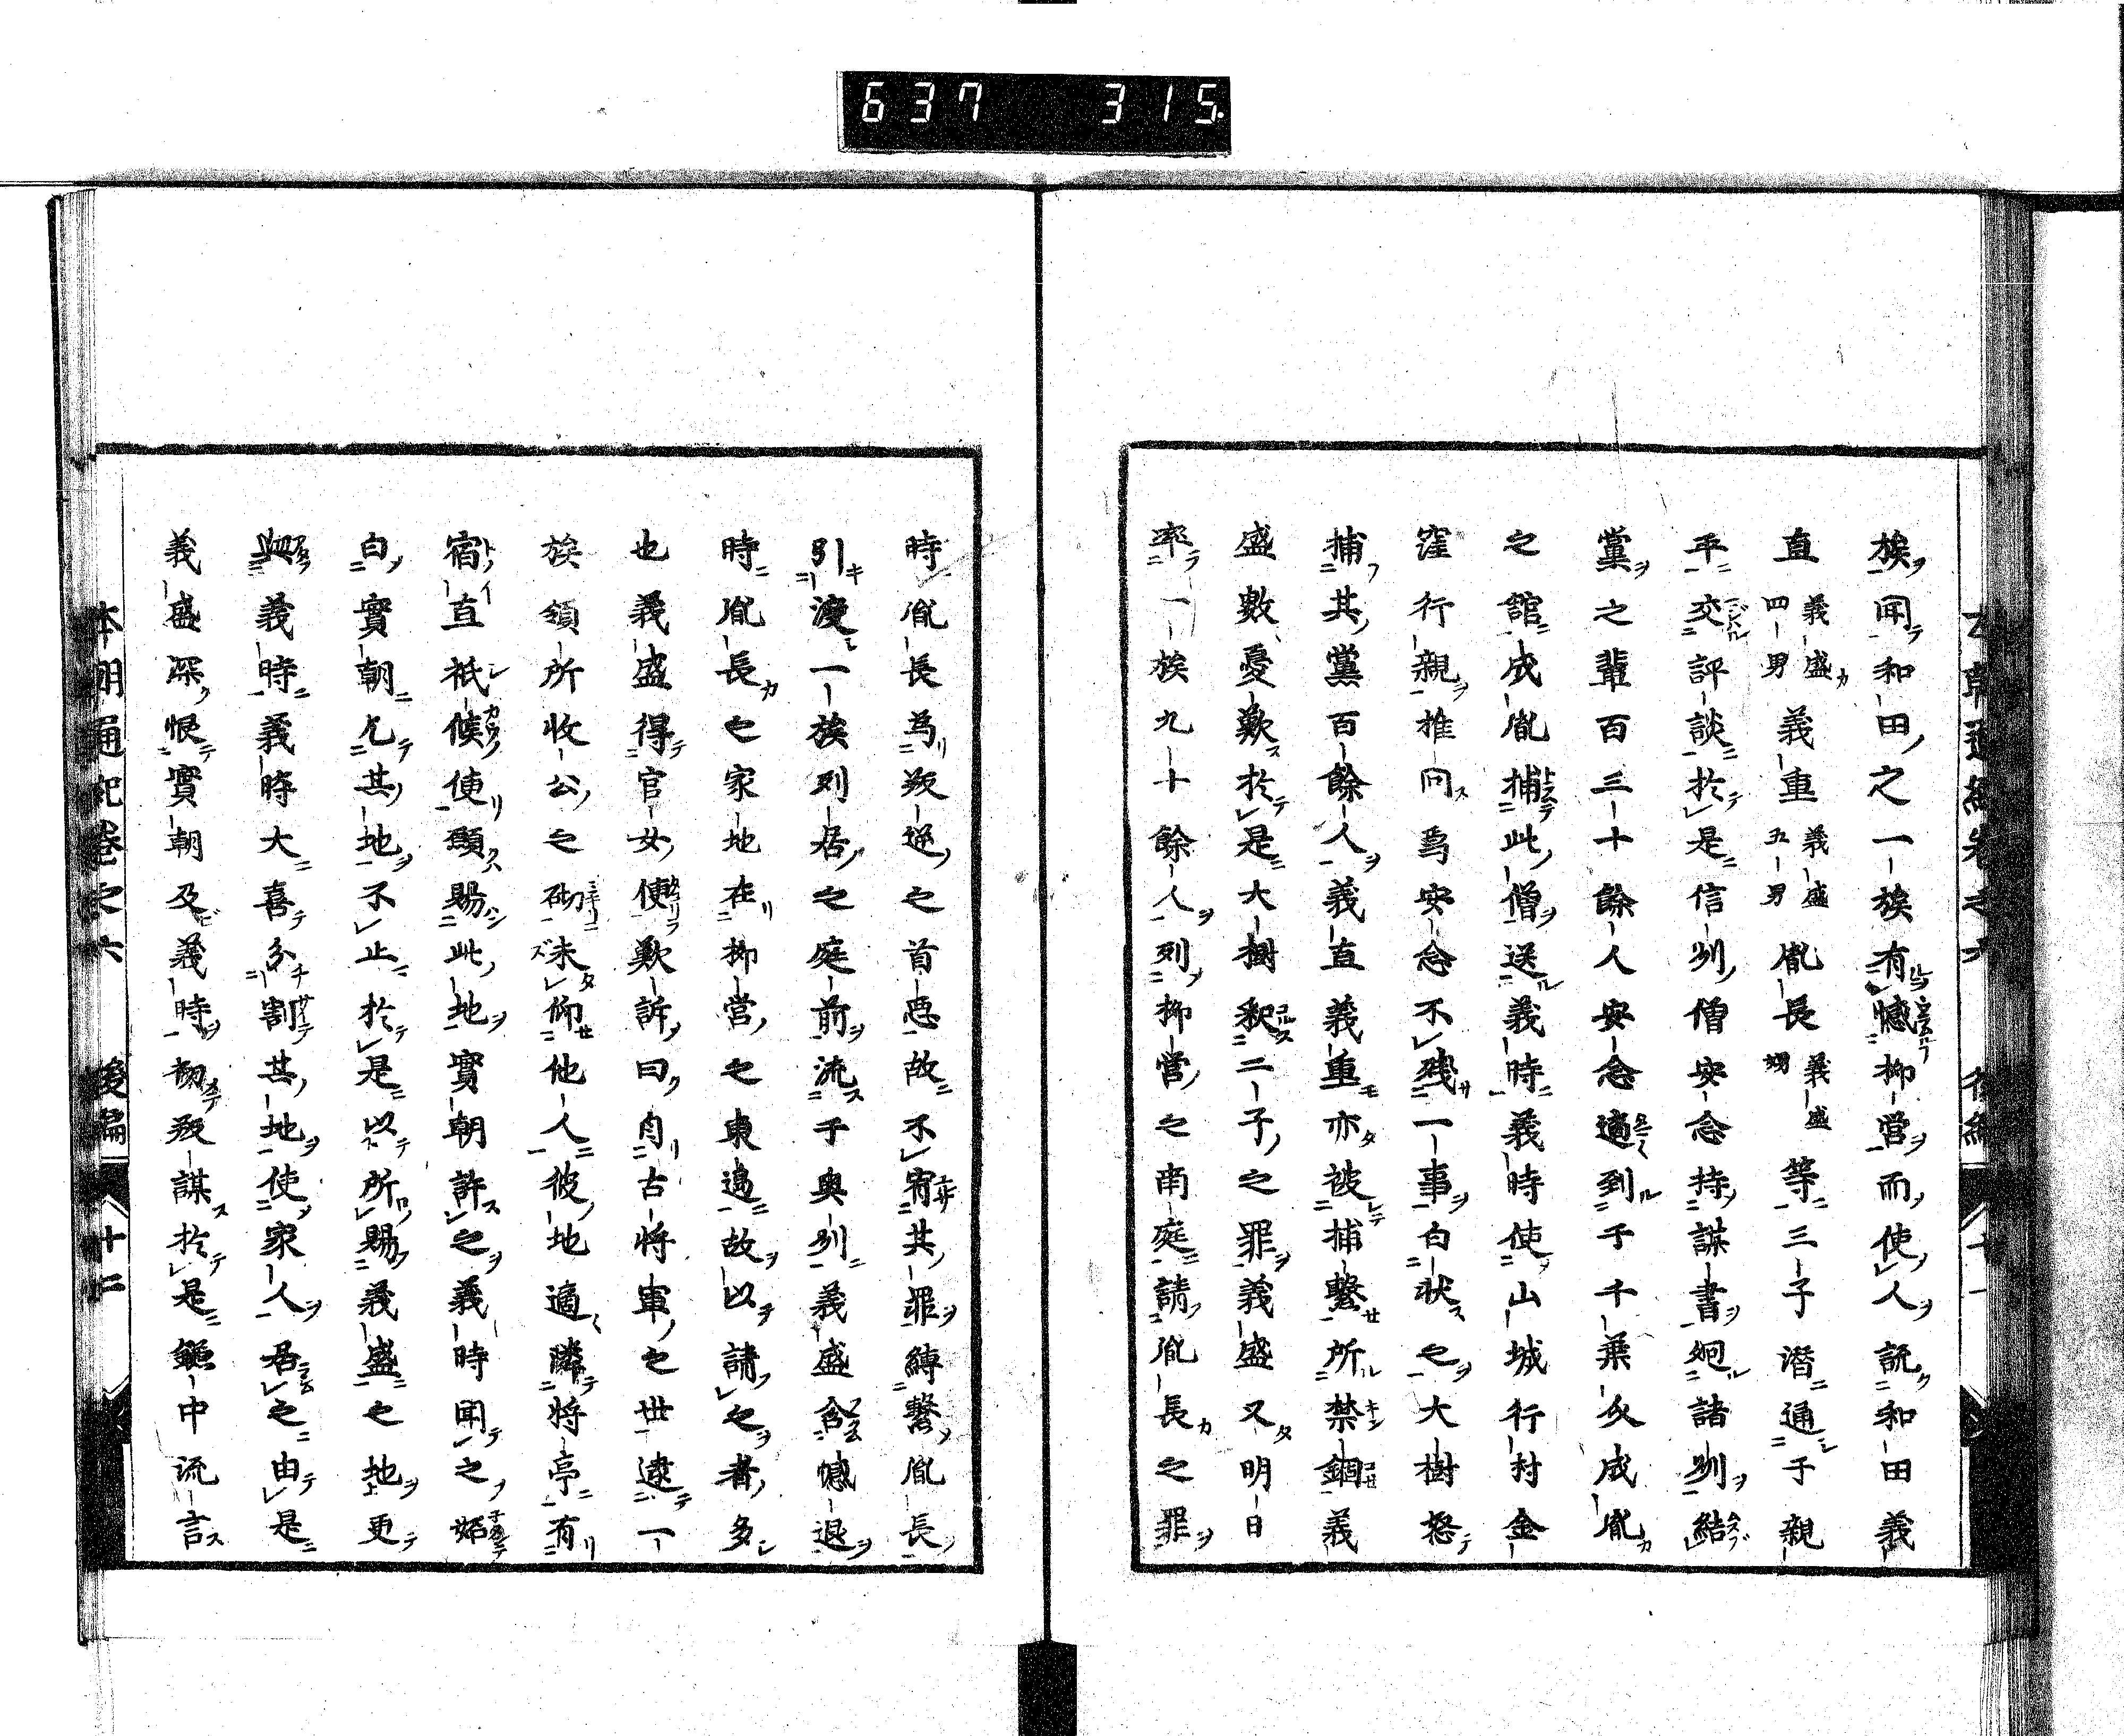 637 315
族聞和田之一族有憾柳営而使人説和田義
直義盛四男義重義盛五男胤長義盛甥等三子潛通于親
平交評談於是信刕僧安念持謀書廻諸刕結
黨之輩百三十餘人安念適到于千葉介成胤
之館成胤捕此僧送義時義時使山城行村金
窪行親推问爲安念不残一事白状之大樹怒
捕其黨百餘人義直義重亦被捕繋所禁錮義
盛數憂歎於是大樹釈二子之罪義盛又明日
率一族九十餘人列柳営之南庭請胤長之罪
時胤長為叛逆之首悪故不宥其罪縛繋胤長
引渡一族列居之庭前流于奥刕義盛含憾退
時胤長之家地在柳営之東邉故以請之者多
也義盛得官女便歎訴曰自古将軍之世逮一
族領所收公之砌未仰他人彼地適隣将亭有
宿直祇候使頗賜此地實朝許之義時聞之妬
白實朝乞其地不止於是以所賜義盛之地更
與義時義時大喜分割其地使家人居之由是
義盛深恨實朝及義時初叛謀於是鎌中流言
本朝通紀卷之六 後編 十二